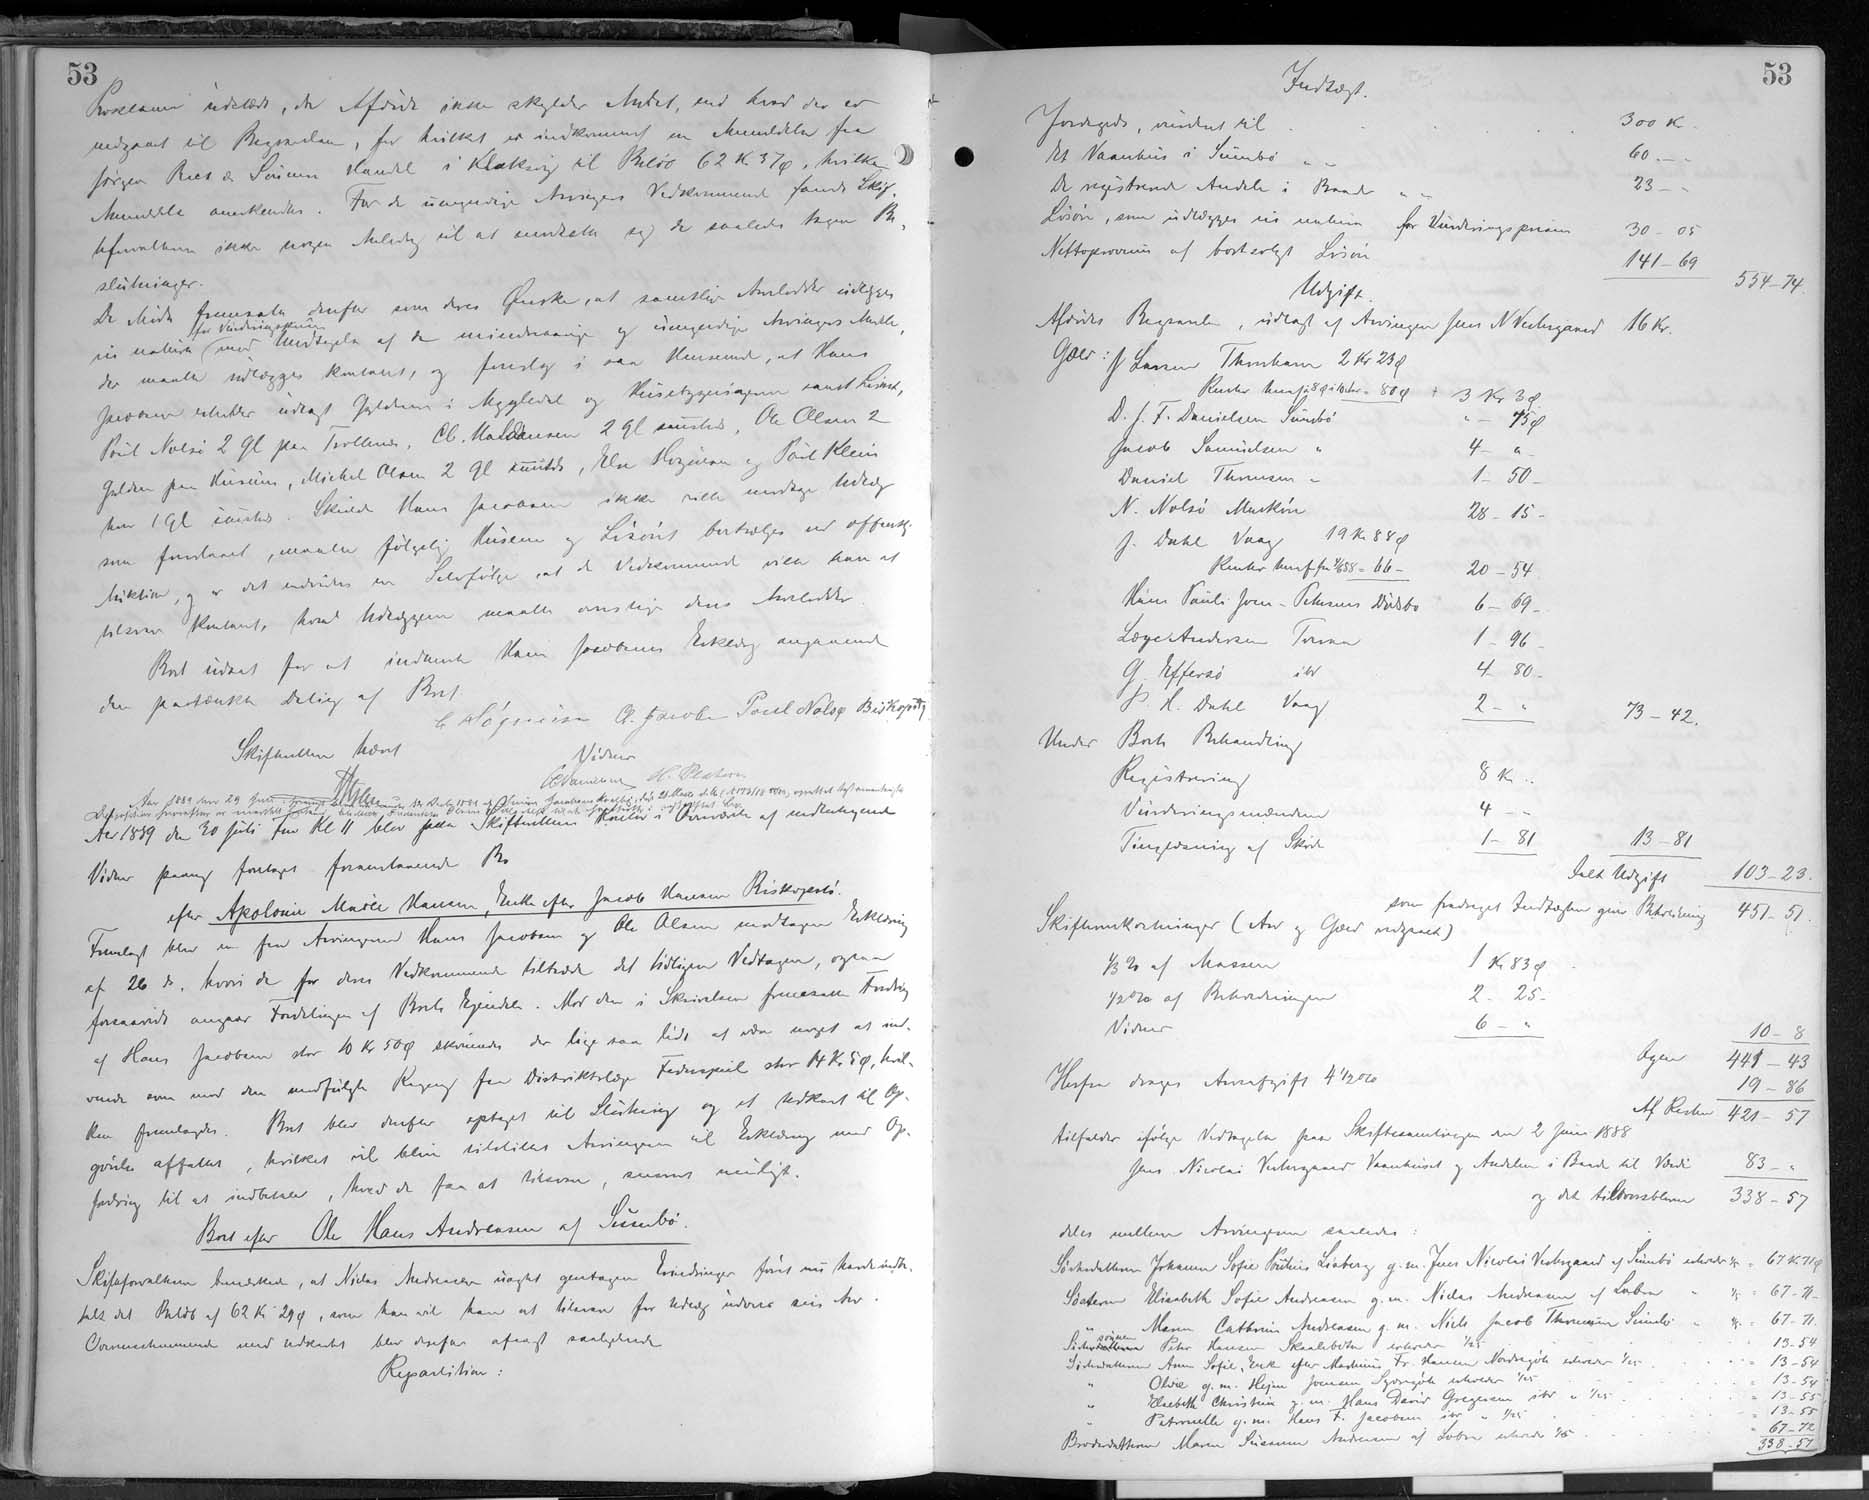 53
Proclama udstædt, da Afdøde ikke skylder Andet, end hvad der er
medgaaet til Begravelsen, for hvilket er indkommet en Anmeldelse fra
Jørgen Bees Handel i Klaksvig til Beløb 62 K 37 ø, hvilken
Anmeldelse anerkendtes. For de umyndige Arvingers Vedkommende fandt Skif-
teforvalteren ikke nogen Anledning til at modsætte sig de saaledes tagne Be-
slutninger.
De Mødte fremsatte derefter som deres Ønske, at samtlige Arvelodder udlægges
in natura for Vurderingssum med Undtagelse af de mindreaarige og umyndige Arvingers Andele,
der maatte udlægges kontant, og foreslog i saa Henseende, at Hans
Jacobsen erholder udlagt Gyldenen i Mygledal og Husebygningerne samt Løsøret,
Poul Nolsø 2 Gl paa Trøllenæs, 2 Gl sammesteds, Ole Olsen 2
Gylden paa Husum, Michel Olsen 2 Gl sammesteds, Else Høgnesen og Poul Klein
hver 1 Gl sammesteds. Skulde Hans Jacobsen ikke ville modtage Udlæg
som foreslaaet, maatte følgelig Husene og Løsøret bortsælges ved offentlig
Auktion, og er det endvidere en Selvfølge, at de Vedkommende ville have at
tilsvare kontant, hvad Udlæggene maatte overstige deres Arvelodder.
Boet udsat for at indhente Hans Jacobsens Erklæring angaaende
den paatænkte Deling af Boet.
Høgnesen Jacobsen Poul Nolsø
Skifteretten hævet
Vidner
Danielsen H. Petersen
Aar 1889 den 30 Juli Fm Kl 11 blev paa Skifterettens Kontor i Overværelse af medundertegnede
Vidner paany foretaget foranstaaende Bo
efter Apolonie Marie Hansen, Enke efter Jacob Hansen Biskopstø.
Fremlagt blev en fra Arvingerne Hans Jacobsen og Ole Olsen modtagen Erklæring
af 26 ds, hvori de for deres Vedkommende tiltræde det tidligere Vedtagne, ogsaa
forsaavidt angaar Fordelingen af Boets Ejendele. Mod den i Skrivelsen fremsatte Fordring
af Hans Jacobsen stor 10 Kr 50 ø skønnedes der lige saa lidt at være noget at ind-
vende som mod den medfulgte Regning fra Distriktslæge Federspiel stor 14 Kr 5 ø, hvil-
ken fremlagdes. Boet blev derefter optaget til Slutning og et Udkast til Op-
gørelse affattet, hvilket vil blive tilstillet Arvingerne til Erklæring med Op-
fordring til at indbetale, hvad de faa at tilsvare, snarest muligt.
Boet efter Ole Hans Andreasen af Sumbø.
Skifteforvalteren bemærkede, at Niclas Andreasen uagtet gentagen Erindringer først nu havde indbe-
talt det Beløb af 62 Kr 29 ø, som han vil have at tilsvare for Udlæg udover sin Arv.
Overensstemmende med Udkastet blev derefter afsagt saalydende
Repartition:
53
Indtægt.
Jordegods, vurderet til 300 K
Et Vaanhus i Sumbø " " 60 - -
De registrerede Andele i Baade " " 23 - -
Løsøre, som udlægges in natura for Vurderingssummen 30 - 05
Nettoprovenu af bortsolgt Løsøre 141 - 69
554 - 74.
Udgift.
Afdødes Begravelse, udlagt af Arvingen Jens N Vestergaard 16 Kr.
Gæld: J Larsen Thorshavn 2 Kr 23 ø
Renter 80 ø 3 Kr 3 ø
D. J. F. Danielsen Sumbø " - 75 ø
Jacob Samuelsen " 4 - " -
Daniel Thomsen " 1 - 50 -
N. Nolsø 28 - 15 -
J. Dahl Vaag 19 Kr 88 ø
Renter heraf fra = 66 - 20 - 54
Hans Pauli Joen-Petersens Dødsbo 6 - 69 -
Læge Andersen Tveraa 1 - 96 -
G. Effersø ibd 4 - 80 -
P. H. Dahl Vaag 2 - " 73 - 42.
Under Boets Behandling
Registrering 8 Kr "
Vurderingsmændene 4 - -
Tinglæsning af Skøde 1 - 81 13 - 81
Ialt Udgift 103 - 23.
som fradraget Indtægten giver Beholdning 451 - 51.
Skifteomkostninger (Arv og Gæld vedgaaet)
1/3 % af Massen 1 Kr 83 ø
1/2 % af Beholdningen 2 - 25 -
Vidner 6 - " 10 - 8
Igen 441 - 43
Herfra drages Arveafgift 4 1/2 % 19 - 86
Af Resten 421 - 57
tilfalder ifølge Vedtagelse paa Skiftesamlingen den 2 Juni 1888
Jens Nicolai Vestergaard Vaanhuset og Andelen i Baade til Værdi 83 - "
og det tiloversblevne 338 - 57
deles mellem Arvingerne saaledes:
Søsterdatteren Johanne Sofie Paulus Linberg g. m. Jens Nicolai Vestergaard af Sumbø erholder 1/5 = 67 K 71 ø
Søsteren Elisabeth Sofie Andreasen g. m. Niclas Andreasen af Lobra " 1/5 = 67 - 71 -
" Maren Cathrine Andreasen g. m. Niels Jacob Thomsen Sumbø " 1/5 = 67 - 71.
Søstersønnen Peter Hansen erholder 1/25 13 - 54
Søsterdatteren Anna Sofie, Enke efter Mathias Fr. Hansen Nordregøte erholder 1/25 = 13 - 54
" Olvie g. m. Hejne Joensen Syregøte erholder 1/25 = 13 - 54
" Elsebeth Christine g. m. Hans David Gregersen ibd " 1/25 = 13 - 55
" Petronelle g. m. Hans F. Jacobsen ibd " 1/25 = 13 - 55
Broderdatteren Maren Susanne Andreasen af Lobra erholder 1/5 67 - 72
338 - 57